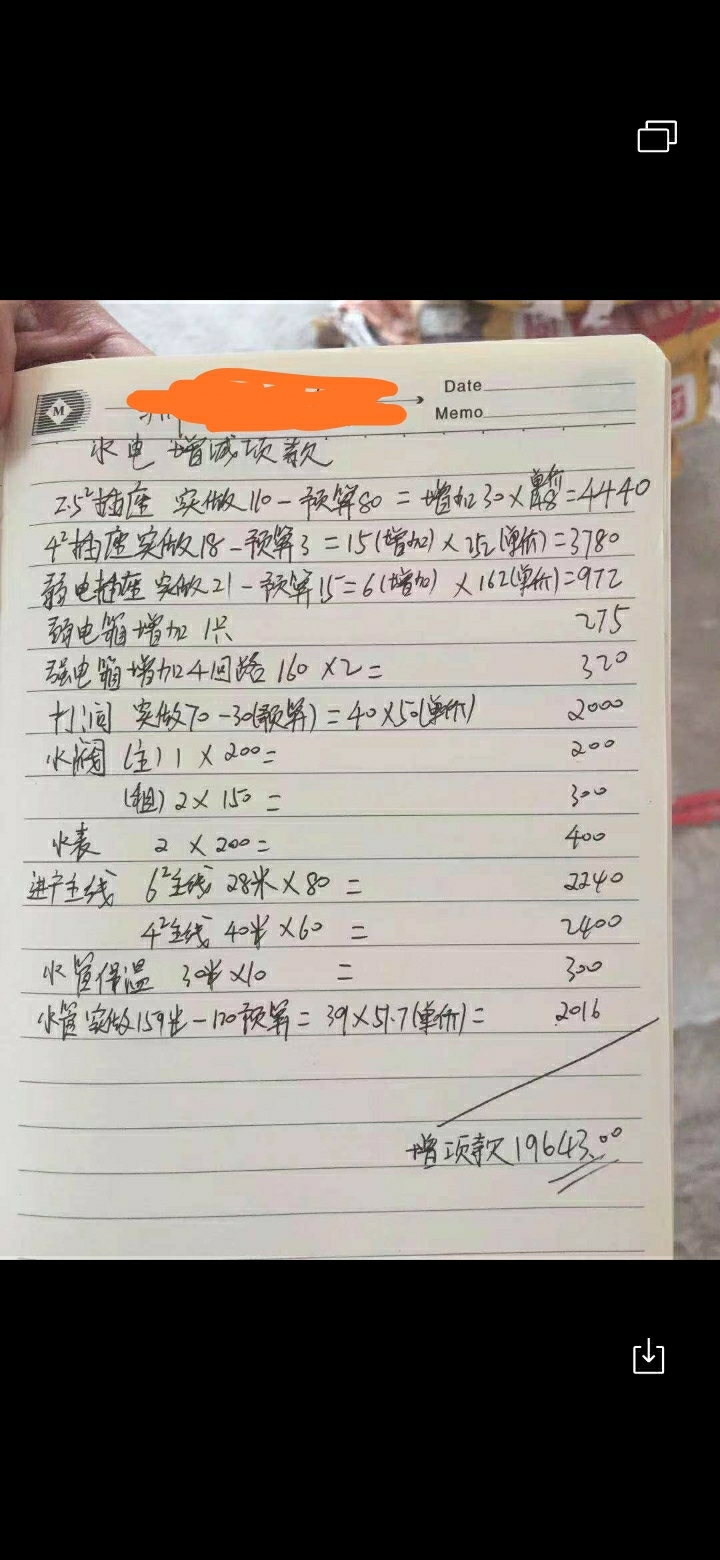 M
Date
Memo
水电 增减项款
2.5²插座 实做110-预算80=增加30×单价148=4440
4²插座实做18-预算3=15(增加)×252(单价)=3780
弱电插座 实做21-预算15=6(增加)×162(单价)=972
弱电箱增加1只 275
强电箱增加4回路 160×2= 320
实做70-30(预算)=40×50(单价) 2000
水阀 (主)1×200= 200
2×150= 300
水表 2×200= 400
进户主线 6²主线 28米×80= 2240
4²主线 40米×60= 2400
水管保温 30米×10= 300
水管实做159米-120预算=39×51.7(单价)= 2016
增项款19643.00